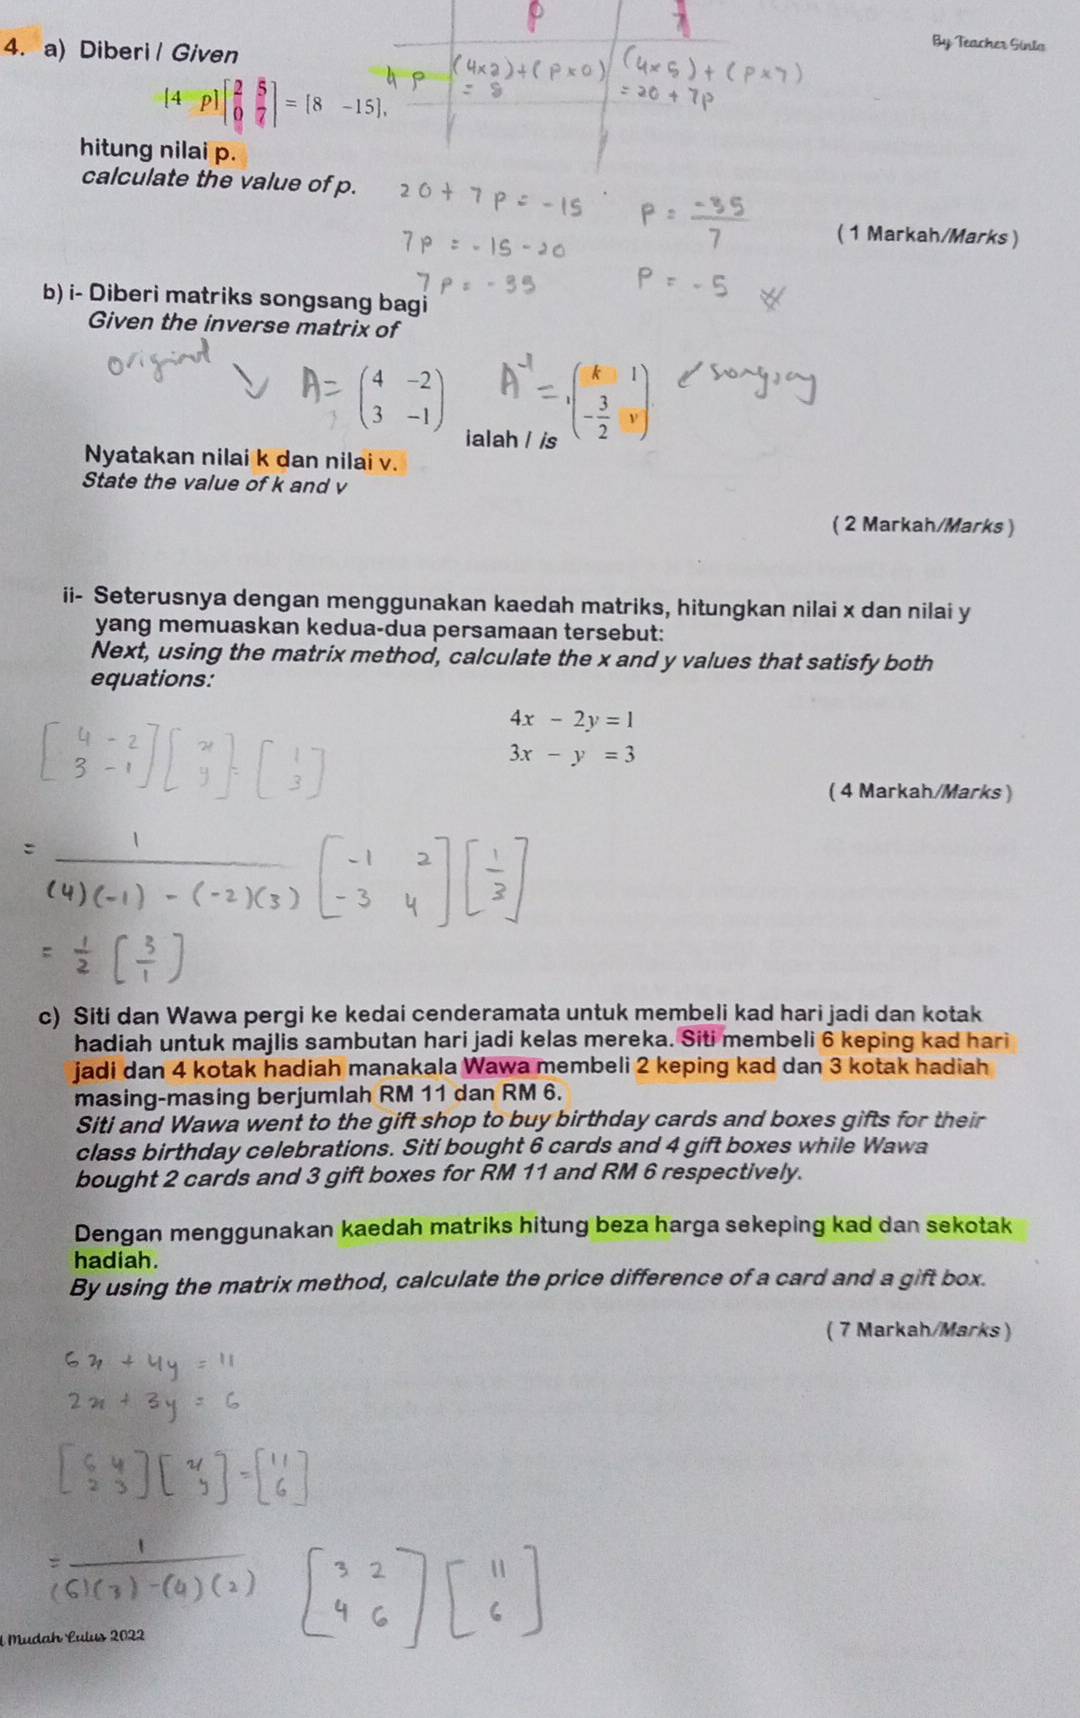 By Teacher Sinta
p 7
4 p (4×2)+(p×0) (4×5)+(p×7)
= 8 = 20 + 7p
4. a) Diberi / Given
[4 p] [2 5 0 7] = [8 -15],
hitung nilai p.
calculate the value of p.
20 + 7p = -15 p = -35/7
7p = -15 - 20
7p = -35 p = -5
( 1 Markah/Marks )
b) i- Diberi matriks songsang bagi
Given the inverse matrix of
original A = (4 -2 3 -1) A⁻¹ = (k 1 -3/2 v) songsang
ialah / is
Nyatakan nilai k dan nilai v.
State the value of k and v
( 2 Markah/Marks )
ii- Seterusnya dengan menggunakan kaedah matriks, hitungkan nilai x dan nilai y
yang memuaskan kedua-dua persamaan tersebut:
Next, using the matrix method, calculate the x and y values that satisfy both
equations:
4x - 2y = 1
3x - y = 3
( 4 Markah/Marks )
[4 -2 3 -1] [x y] = [1 3]
= 1/(4)(-1) - (-2)(3) [-1 2 -3 4] [1/3]
= 1/2 [3/1]
c) Siti dan Wawa pergi ke kedai cenderamata untuk membeli kad hari jadi dan kotak
hadiah untuk majlis sambutan hari jadi kelas mereka. Siti membeli 6 keping kad hari
jadi dan 4 kotak hadiah manakala Wawa membeli 2 keping kad dan 3 kotak hadiah
masing-masing berjumlah RM 11 dan RM 6.
Siti and Wawa went to the gift shop to buy birthday cards and boxes gifts for their
class birthday celebrations. Siti bought 6 cards and 4 gift boxes while Wawa
bought 2 cards and 3 gift boxes for RM 11 and RM 6 respectively.
Dengan menggunakan kaedah matriks hitung beza harga sekeping kad dan sekotak
hadiah.
By using the matrix method, calculate the price difference of a card and a gift box.
( 7 Markah/Marks )
6x + 4y = 11
2x + 3y = 6
[6 4 2 3] [x y] = [11 6]
= 1/(6)(3)-(4)(2) [3 2 4 6] [11 6]
Mudah Lulus 2022